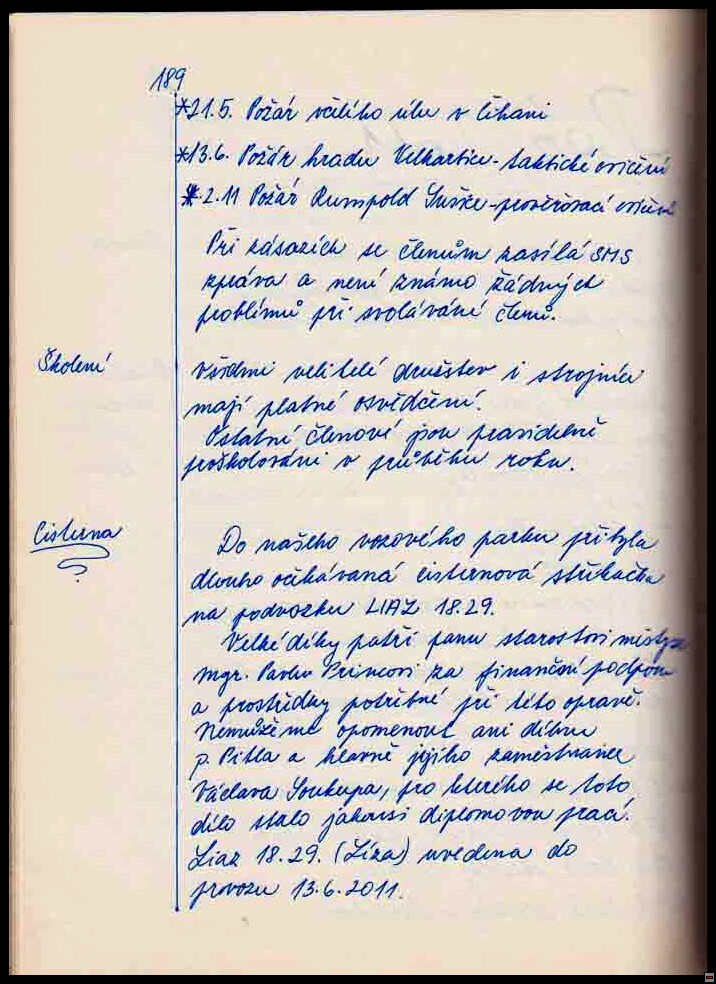 189
*21.5. Požár včelího úlu v Číhani
*13.6. Požár hradu Velhartice - taktické cvičení
*2.11 Požár Rumpold Sušice - prověřovací cvičení
Při zásazích se členům zasílá SMS
zpráva a není známo žádných
problémů při svolávání členů.
Školení
Všichni velitelé družstev i strojníci
mají platné osvědčení.
Ostatní členové jsou pravidelně
proškolováni v průběhu roku.
Cisterna
Do našeho vozového parku přibyla
dlouho očekávaná cisternová stříkačka
na podvozku LIAZ 18.29.
Velké díky patří panu starostovi městyse
mgr. Pavlu Princovi za finanční podporu
a prostředky potřebné při této opravě.
Nemůžeme opomenout ani dílnu
p. Pitla a hlavně jejího zaměstnance
Václava Soukupa, pro kterého se toto
dílo stalo jakousi diplomovou prací.
Liaz 18.29. (Líza) uvedena do
provozu 13.6.2011.